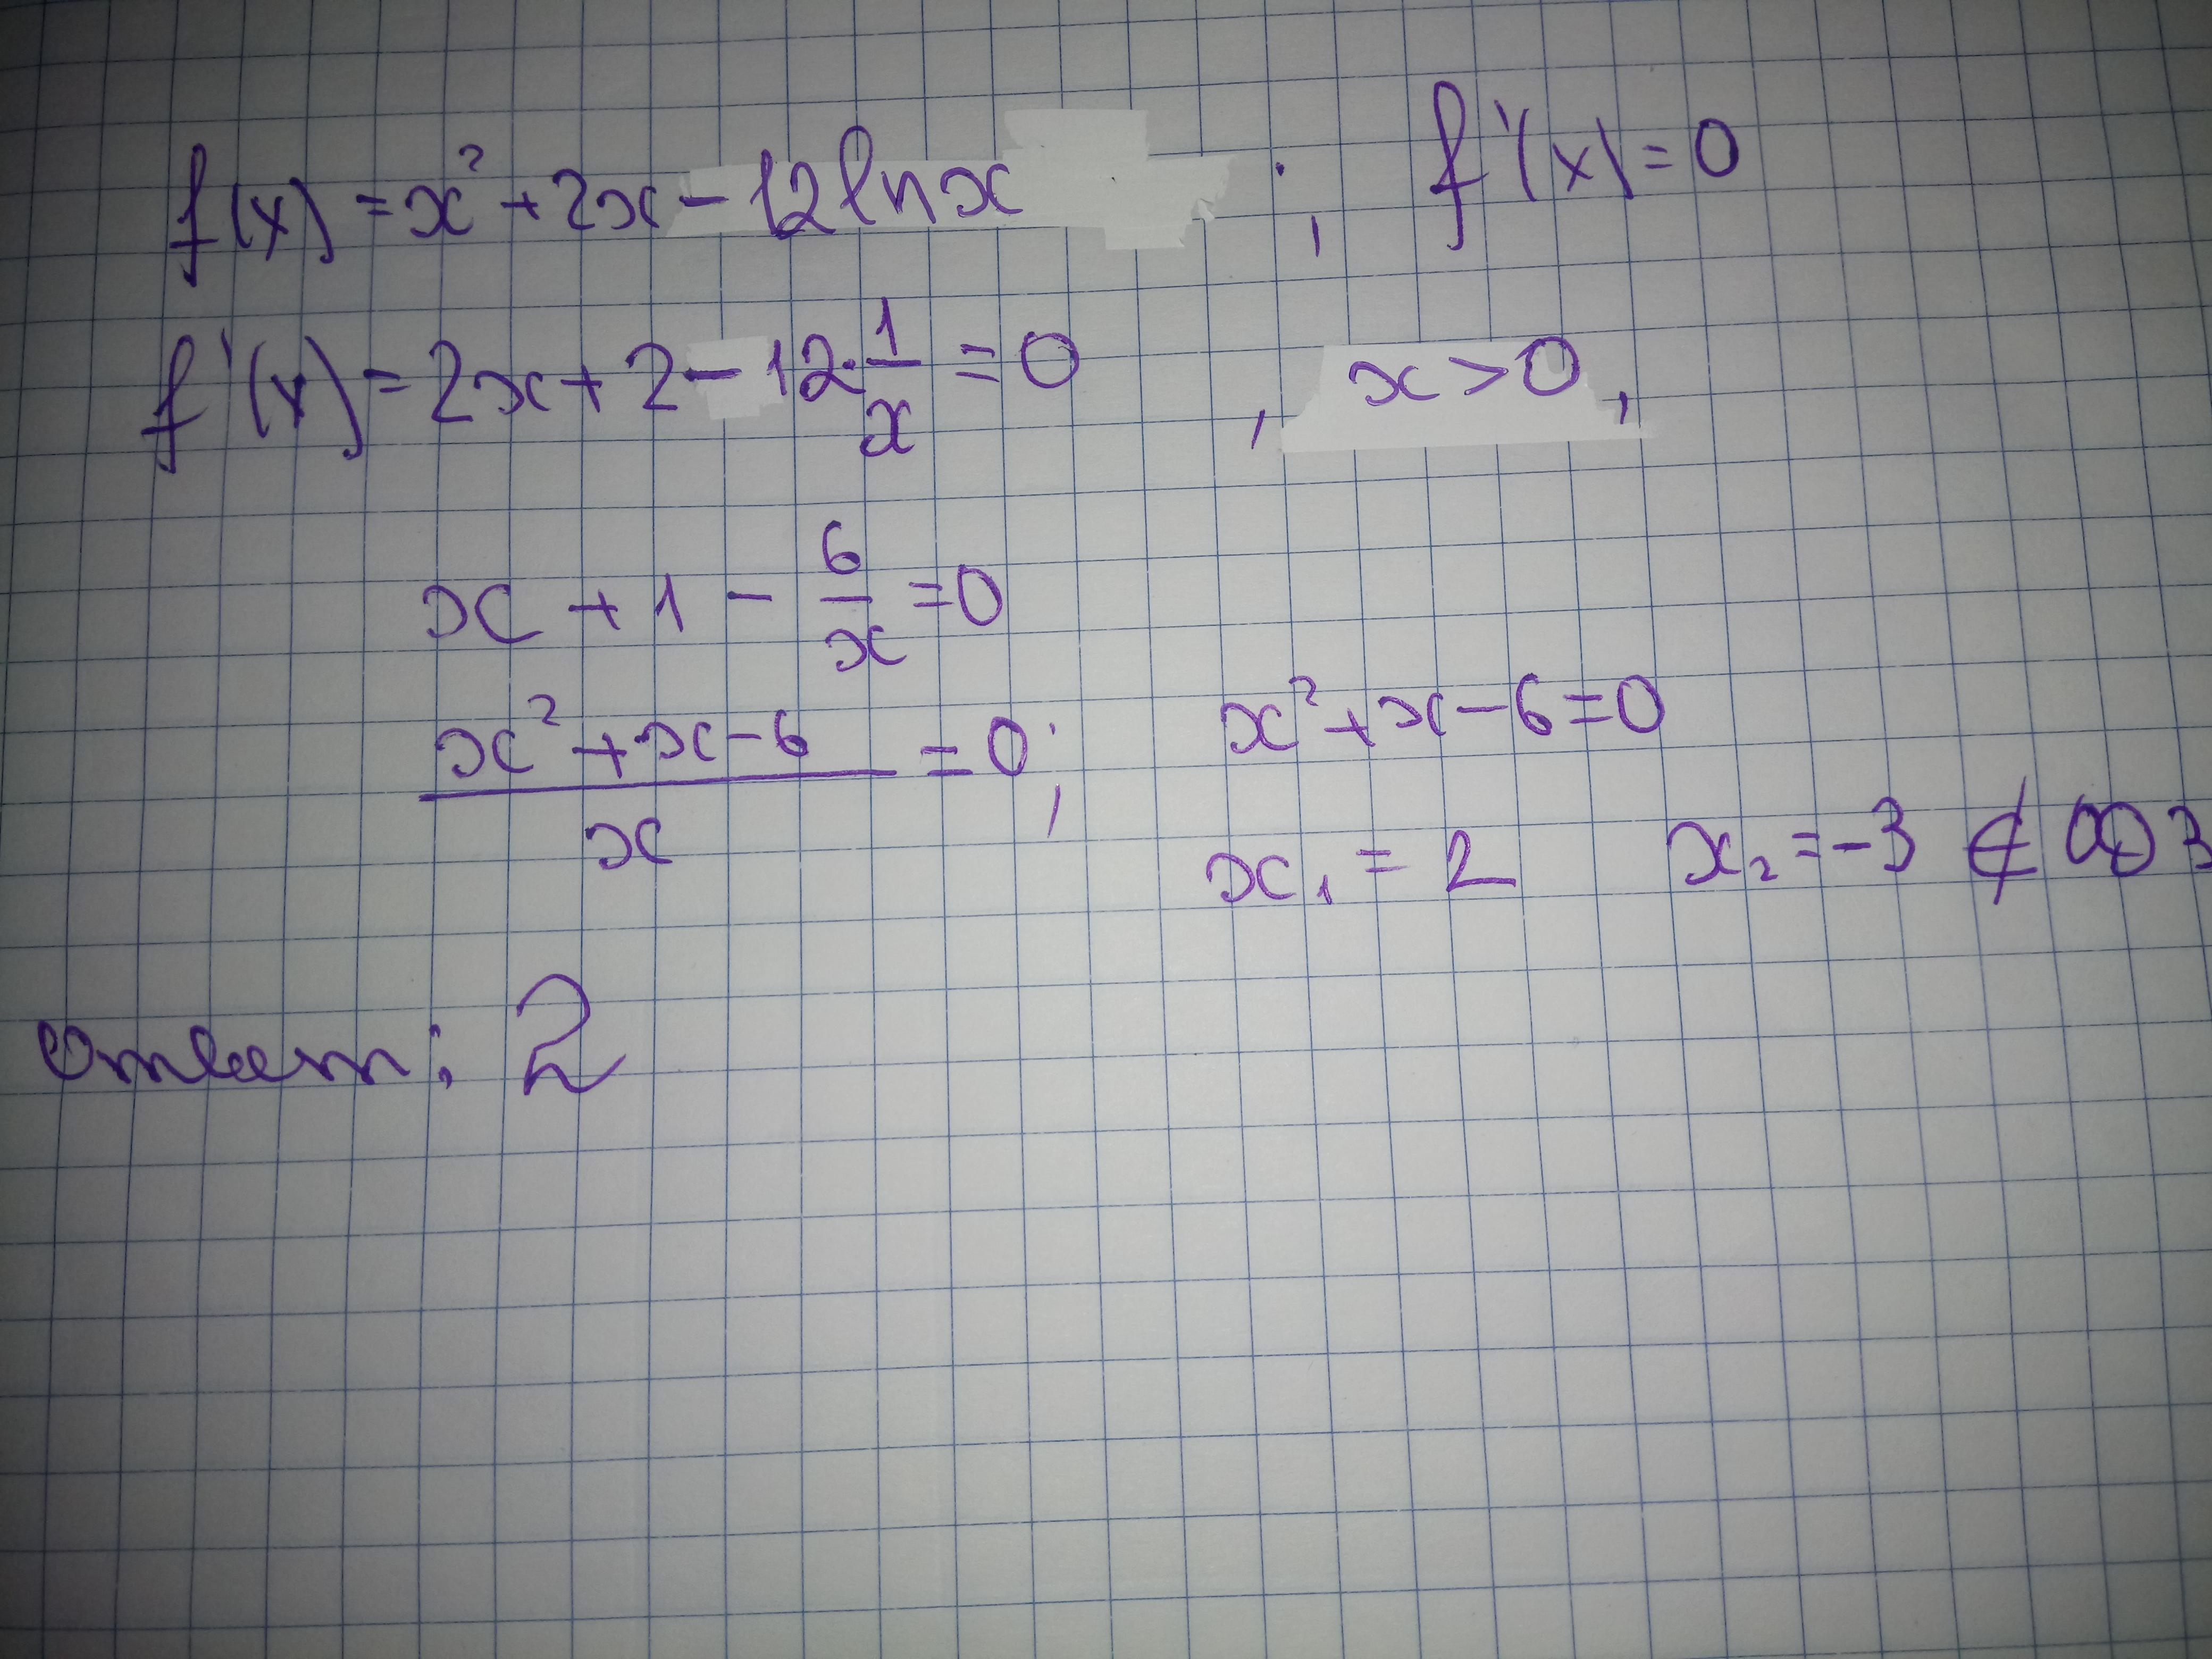 f(x) = x² + 2x - 12 ln x ; f'(x) = 0
f'(x) = 2x + 2 - 12 · 1/x = 0 , x > 0 ,
x + 1 - 6/x = 0
(x² + x - 6)/x = 0 ; x² + x - 6 = 0
x₁ = 2 x₂ = -3 ∉ ОДЗ
ответ: 2